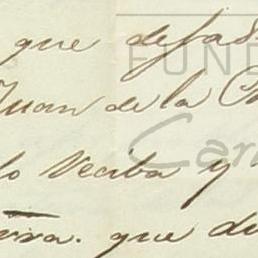 que defas
Juan de la C
lo reciba y
que di
FUND
Car